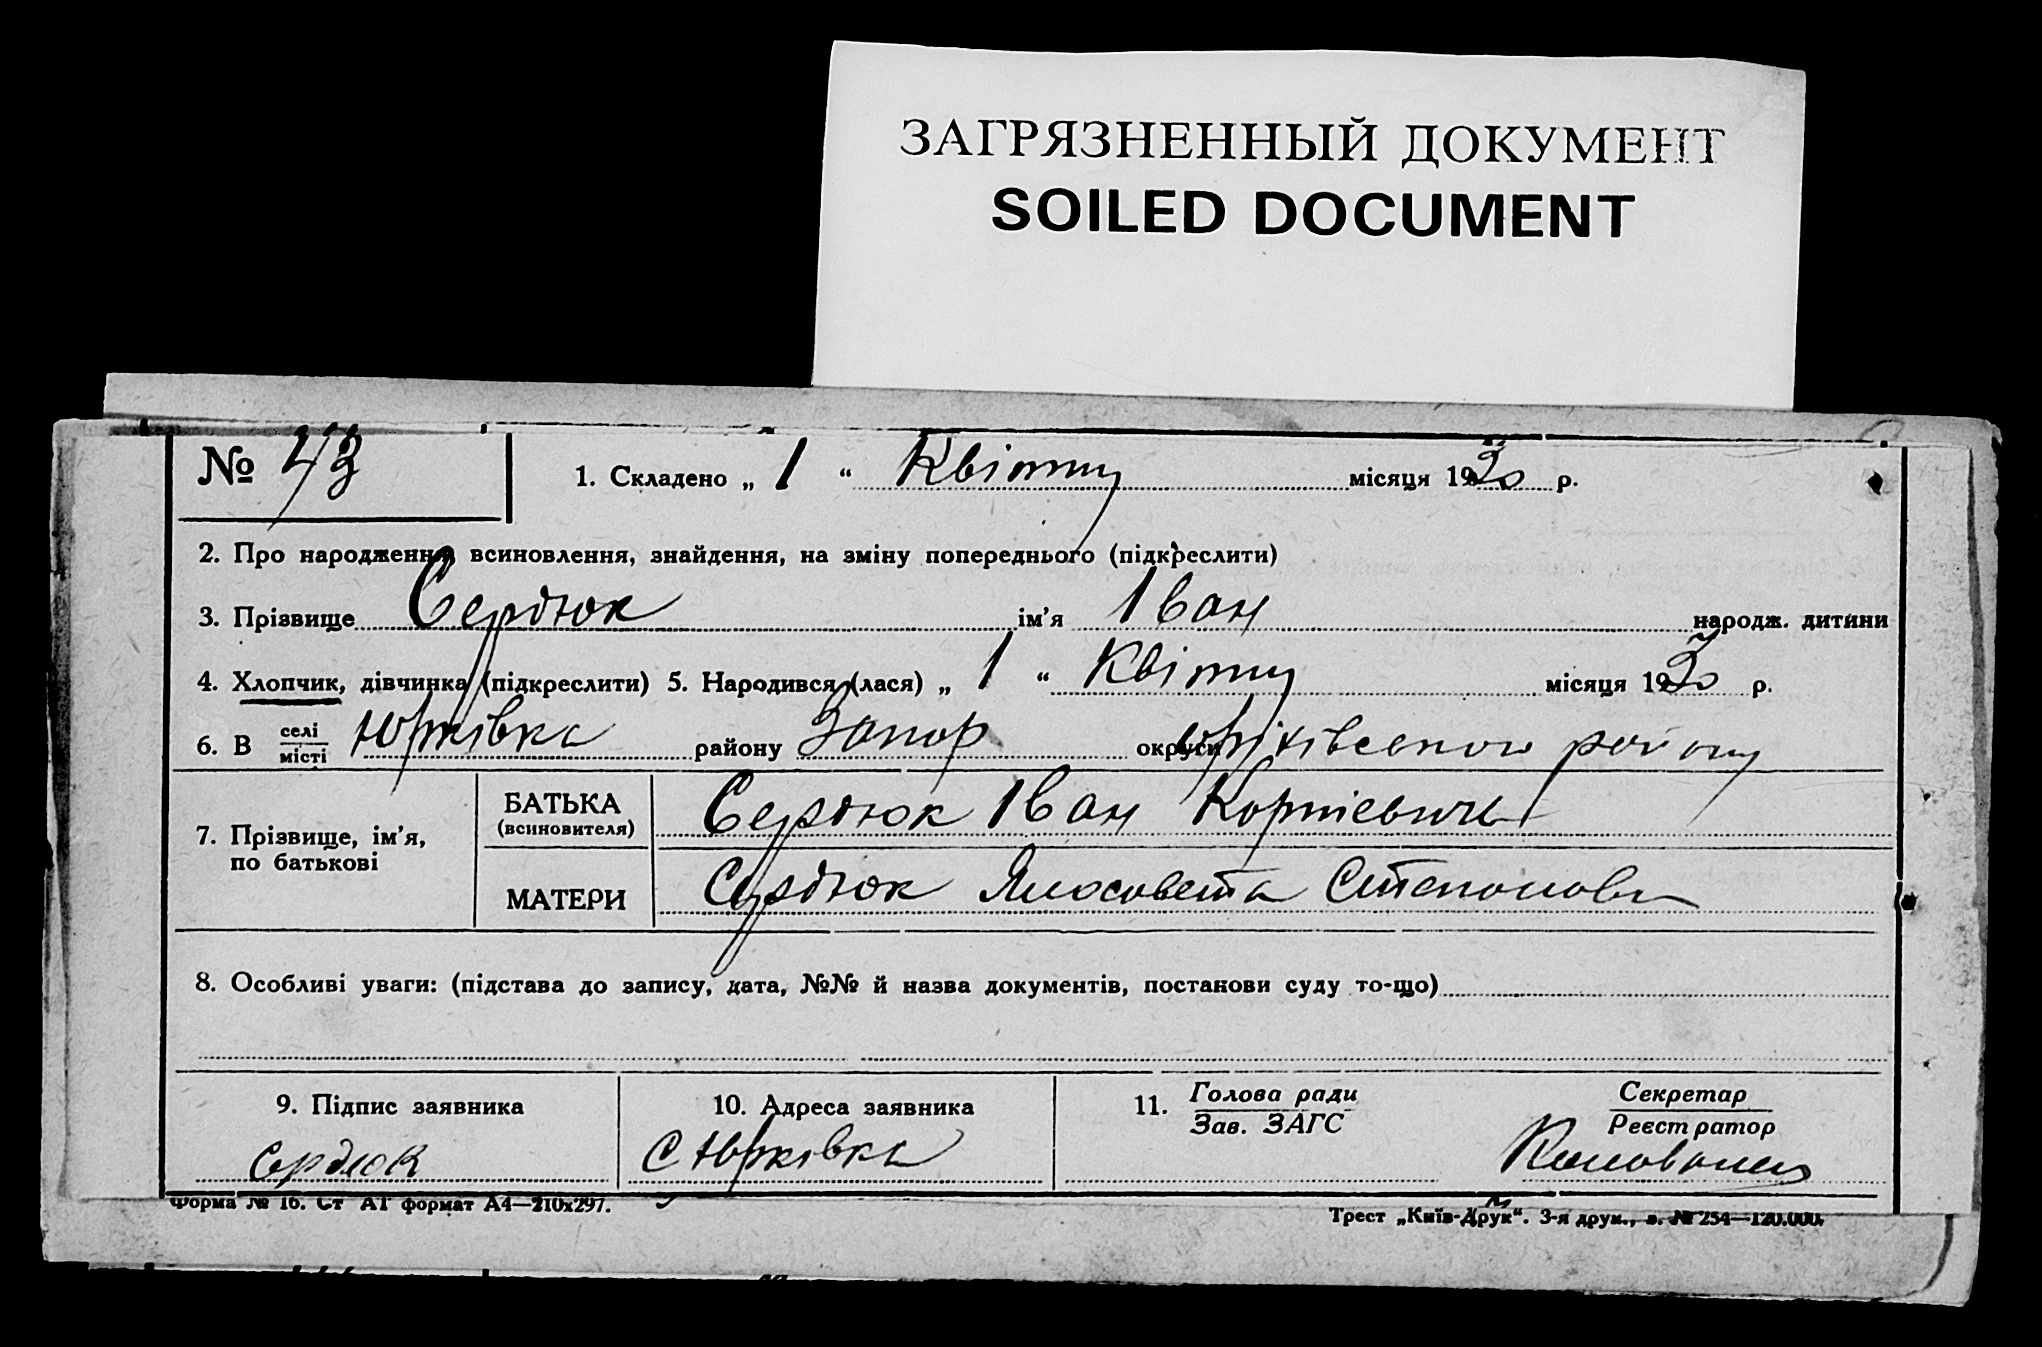 ЗАГРЯЗНЕННЫЙ ДОКУМЕНТ
SOILED DOCUMENT
№ 43
1. Складено „ 1 “ Квітня місяця 1930 р.
2. Про народження, всиновлення, знайдення, на зміну попереднього (підкреслити)
3. Прізвище Сердюк ім’я Іван народж. дитини
4. Хлопчик, дівчинка (підкреслити) 5. Народився (лася) „ 1 “ Квітня місяця 1930 р.
6. В селі/місті Юрківка району Запор округи Оріхівського району
7. Прізвище, ім’я, по батькові
БАТЬКА (всиновителя) Сердюк Іван Корнієвич
МАТЕРИ Сердюк Степанов
8. Особливі уваги: (підстава до запису, дата, №№ й назва документів, постанови суду то-що)
9. Підпис заявника
Сердюк
10. Адреса заявника
С Юрківка
11. Голова ради
Зав. ЗАГС
Секретар
Реєстратор
Форма № 16. Ст АТ формат А4—210х297.
Трест „Київ-Друк“. 3-я друк., з. № 254—120.000.